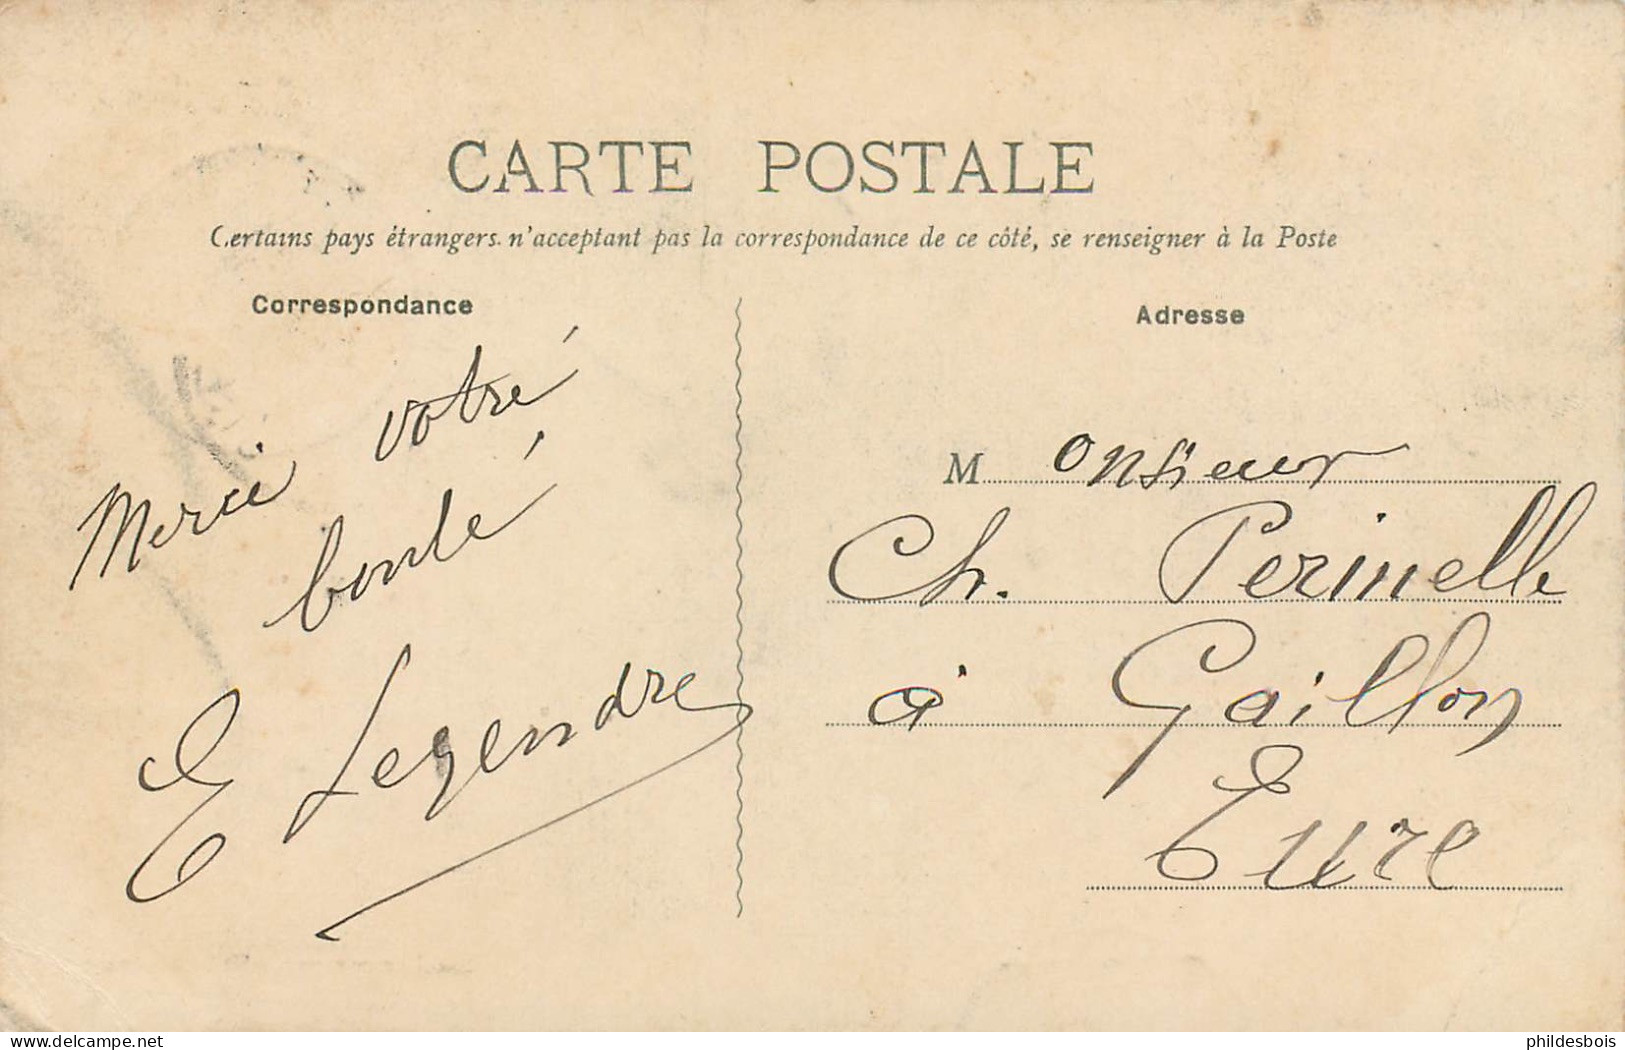 CARTE POSTALE
Certains pays étrangers n'acceptant pas la correspondance de ce côté, se renseigner à la Poste
Correspondance
Merci votré
bonté
E Legendre
Adresse
Monsieur
Ch. Perinelle
à Gaillon
Eure
delcampe.net
phildesbois